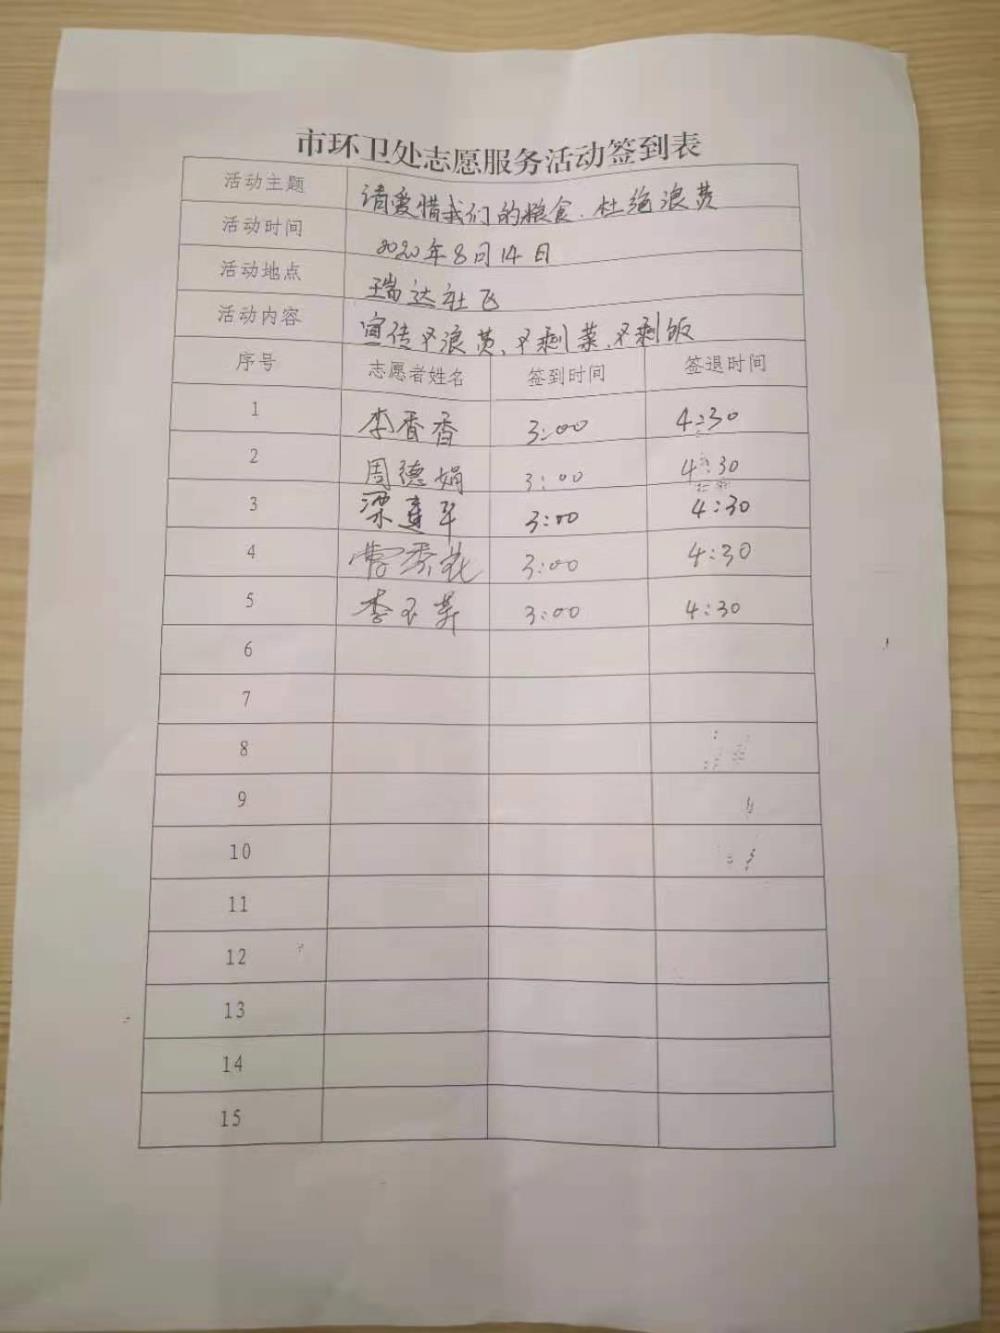 市环卫处志愿服务活动签到表
活动主题 请爱惜我们的粮食.杜绝浪费
活动时间 2020年8月14日
活动地点 瑞达社区
活动内容 宣传不浪费、不剩菜、不剩饭
序号 志愿者姓名 签到时间 签退时间
1 李香香 3:00 4:30
2 周德娟 3:00 4:30
3 梁连军 3:00 4:30
4 3:00 4:30
5 李玉 3:00 4:30
6
7
8
9
10
11
12
13
14
15